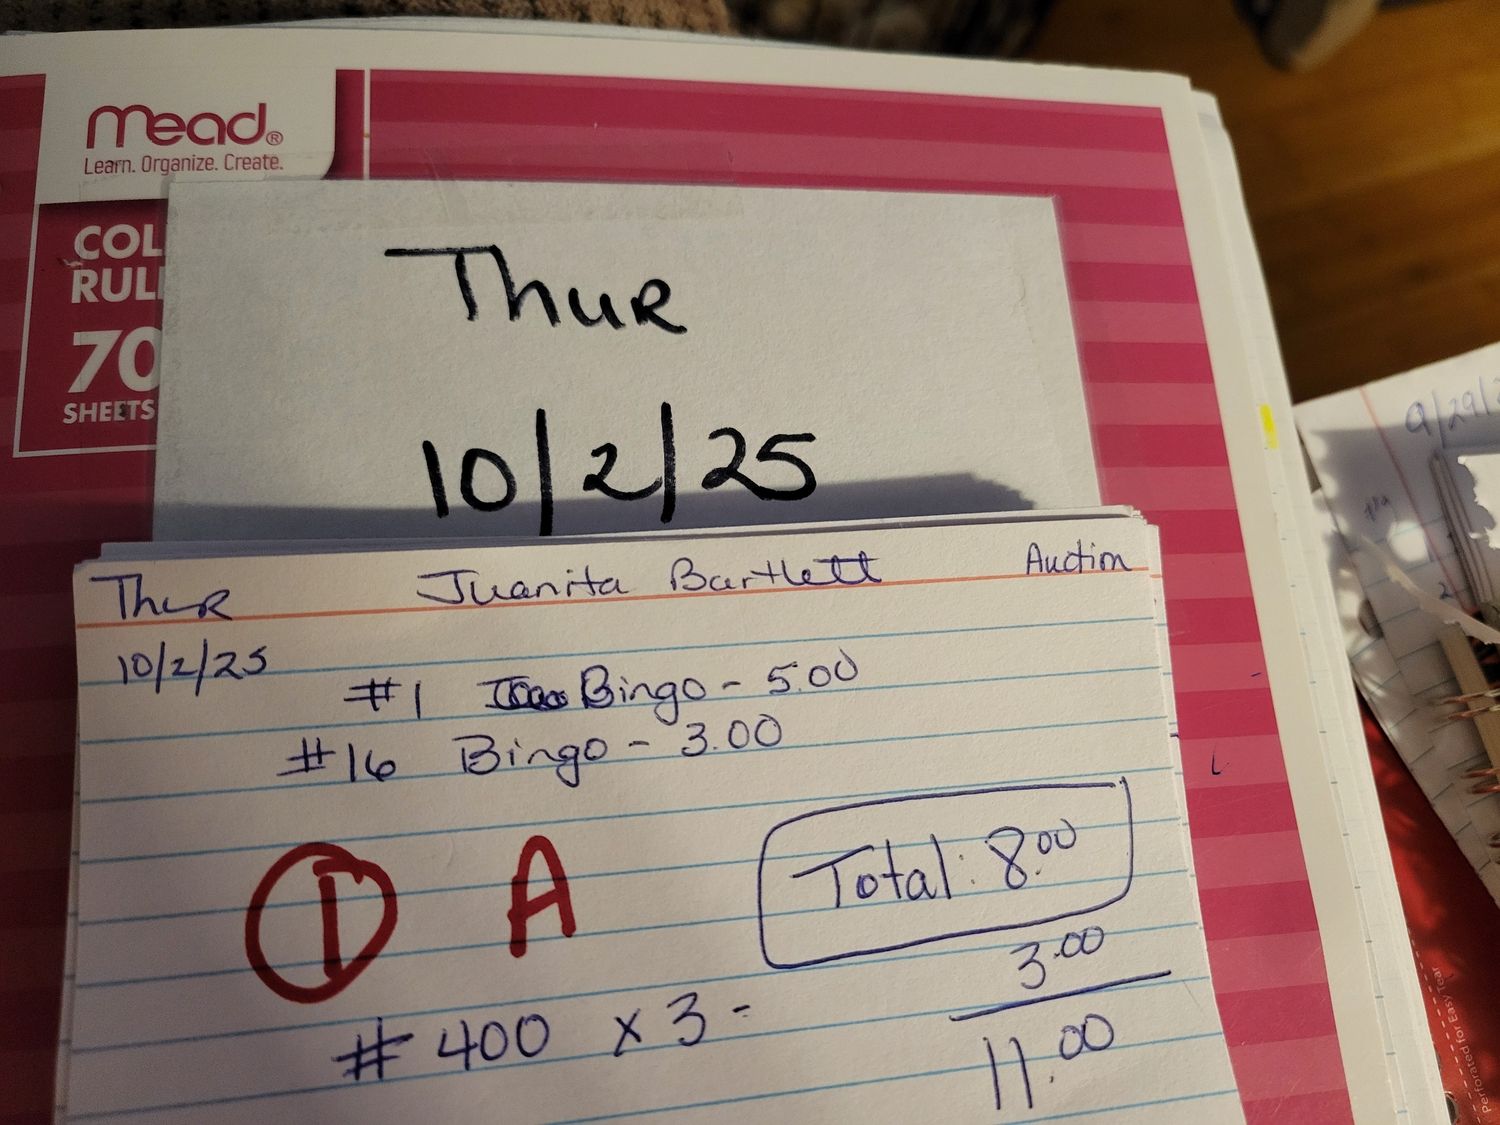 Mead®
Learn. Organize. Create.
COL
RUL
70
SHEETS
Thur
10/2/25
Thur Juanita Bartlett Auction
10/2/25
#1 Bingo - 5.00
#16 Bingo - 3.00
1 A
Total: 8.00
3.00
#400 x 3 -
11.00
9/29/2
Perforated for Easy Tear